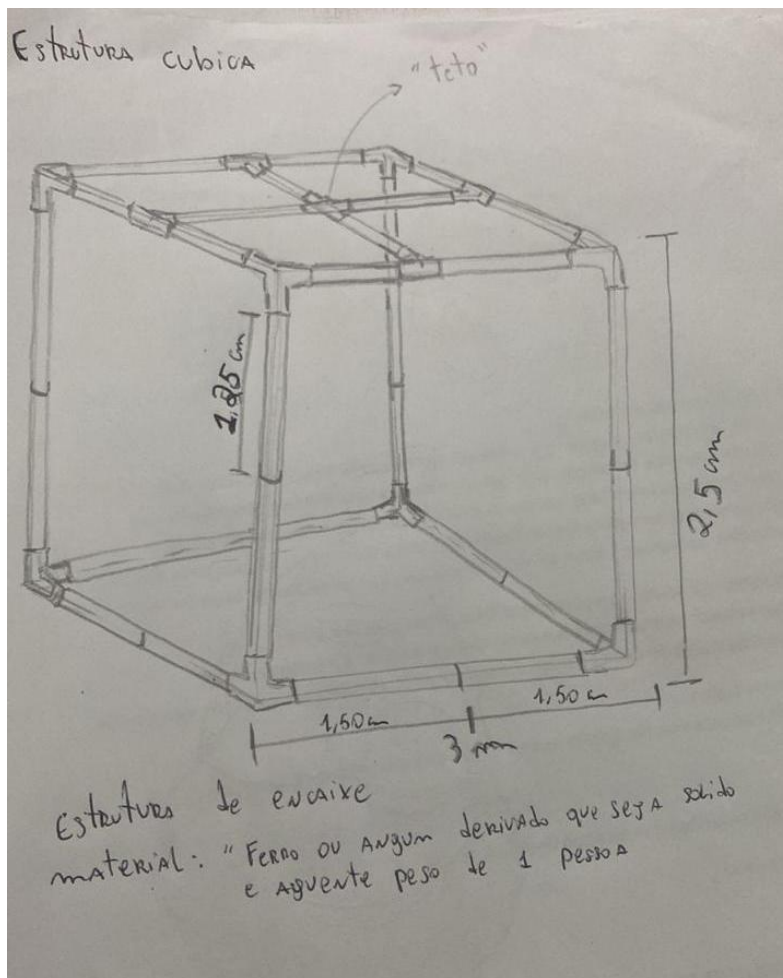 Estrutura cubica
"teto"
1,25 cm
2,5 cm
1,50 cm
1,50 cm
3 mm
Estrutura de encaixe
material: "Ferro ou angum derivado que seja solido
e aguente peso de 1 pessoa